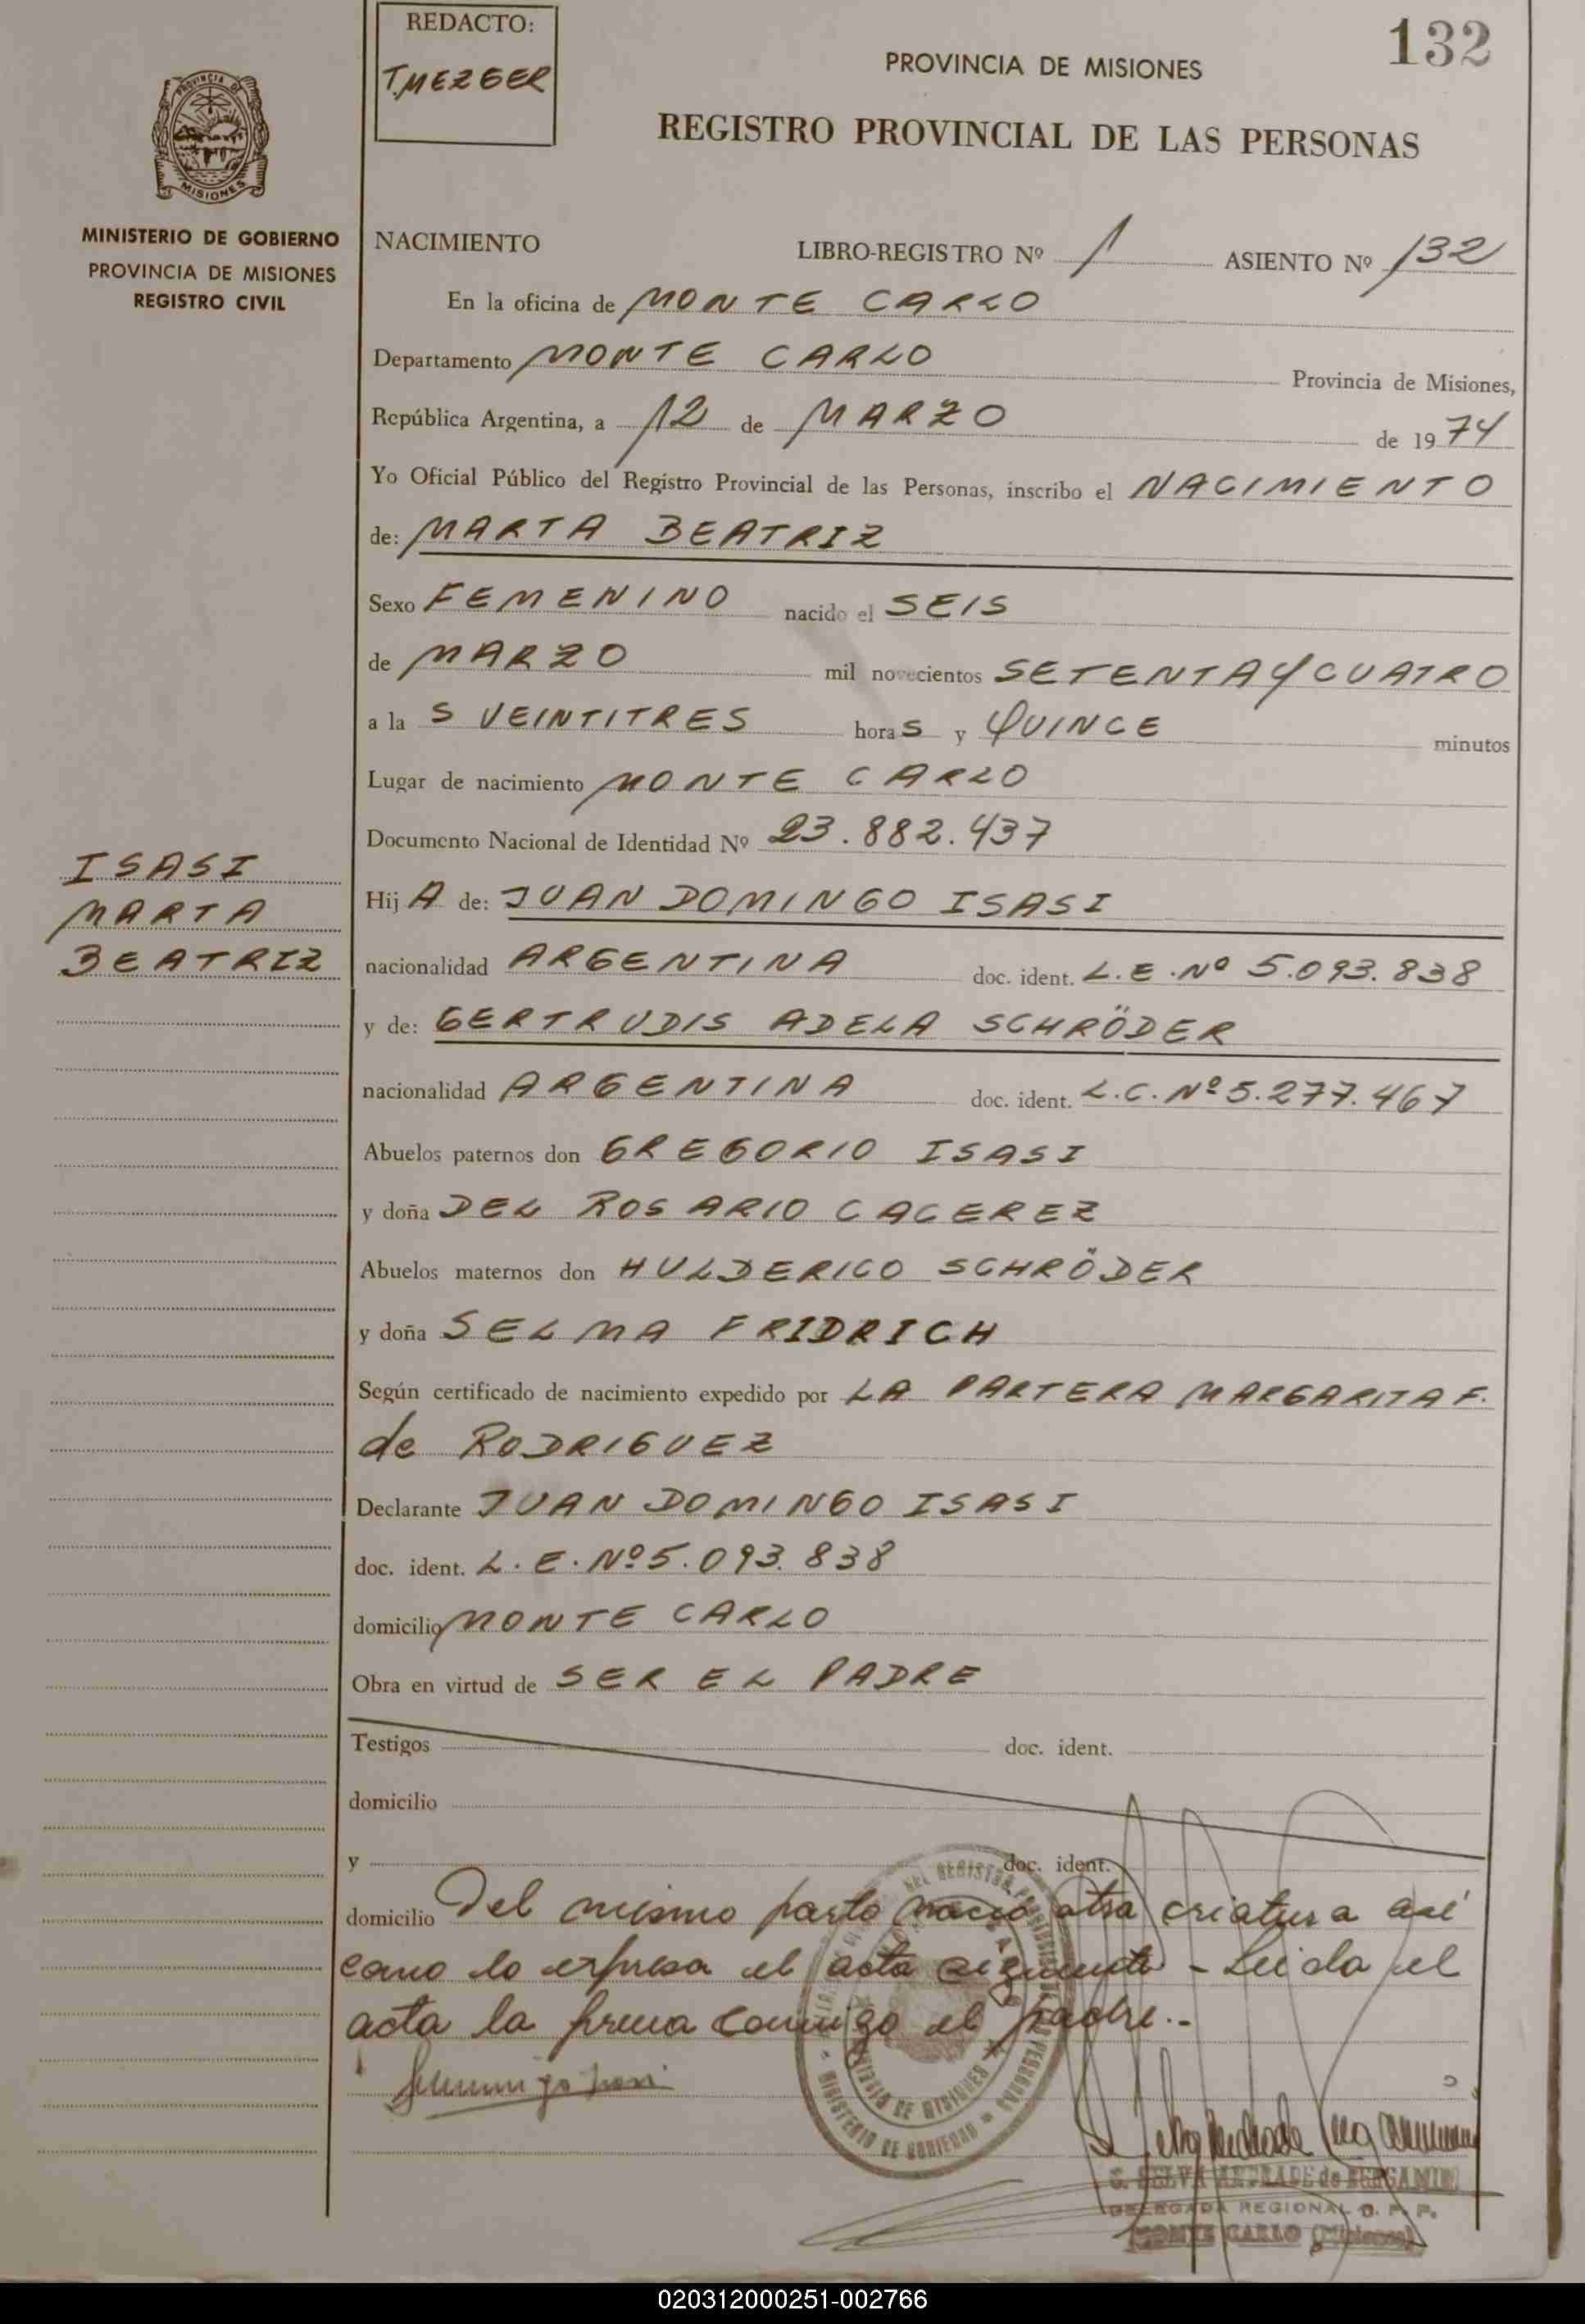 REDACTO:
T. MEZGER
132
PROVINCIA DE MISIONES
REGISTRO PROVINCIAL DE LAS PERSONAS
PROVINCIA DE
MISIONES
MINISTERIO DE GOBIERNO
PROVINCIA DE MISIONES
REGISTRO CIVIL
NACIMIENTO LIBRO-REGISTRO Nº 1 ASIENTO Nº 132
En la oficina de MONTE CARLO
Departamento MONTE CARLO Provincia de Misiones,
República Argentina, a 12 de MARZO de 1974
Yo Oficial Público del Registro Provincial de las Personas, inscribo el NACIMIENTO
de: MARTA BEATRIZ
Sexo FEMENINO nacido el SEIS
de MARZO mil novecientos SETENTA Y CUATRO
a la S VEINTITRES horas y QUINCE minutos
Lugar de nacimiento MONTE CARLO
Documento Nacional de Identidad Nº 23.882.437
ISASI
MARTA
BEATRIZ
Hij A de: JUAN DOMINGO ISASI
nacionalidad ARGENTINA doc. ident. L.E. Nº 5.093.838
y de: GERTRUDIS ADELA SCHRÖDER
nacionalidad ARGENTINA doc. ident. L.C. Nº 5.277.467
Abuelos paternos don GREGORIO ISASI
y doña DEL ROSARIO CACEREZ
Abuelos maternos don HULDERICO SCHRÖDER
y doña SELMA FRIDRICH
Según certificado de nacimiento expedido por LA PARTERA MARGARITA F.
de RODRIGUEZ
Declarante JUAN DOMINGO ISASI
doc. ident. L.E. Nº 5.093.838
domicilio MONTE CARLO
Obra en virtud de SER EL PADRE
Testigos doc. ident.
domicilio
y doc. ident.
domicilio Del mismo parto nacio otra criatura así
como lo expresa el acta siguiente - Leida el
acta la firma conmigo el padre.-
MINISTERIO DE GOBIERNO
PROVINCIA DE MISIONES
S. SELVA ANDRADE de BERGAMIN
DELEGADA REGIONAL R. P. P.
MONTE CARLO (Misiones)
020312000251-002766